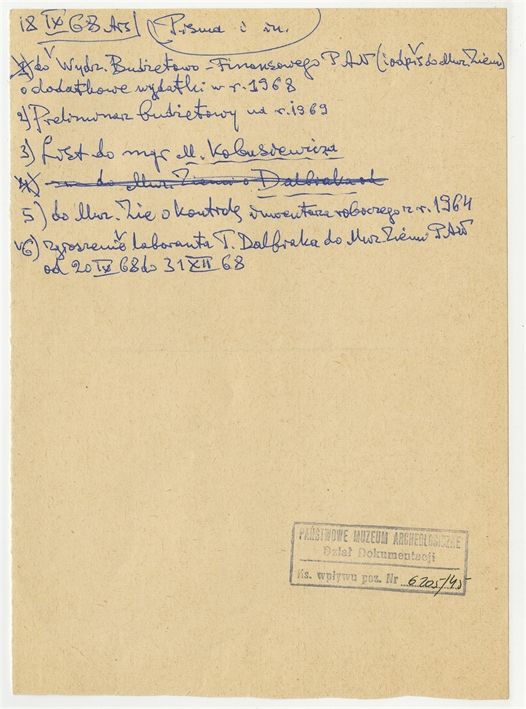 18 IX 68 Ars Pisma i in.
1) do Wydz. Budżetowo-Finansowego PAN (i odpis do Muz. Ziemi)
o dodatkowe wydatki w r. 1968
2) Preliminarz budżetowy na r. 1969
3) List do mgr M. Kobusiewicza
4) do Muz. Ziemi o Dalbiaka od
5) do Muz. Zie o kontrolę inwentarza roboczego z r. 1964
6) zgłoszenie laboranta T. Dalbiaka do Muz. Ziemi PAN
od 20 IX 68 do 31 XII 68
PAŃSTWOWE MUZEUM ARCHEOLOGICZNE
Dział Dokumentacji
Ks. wpływu poz. Nr 6205/95